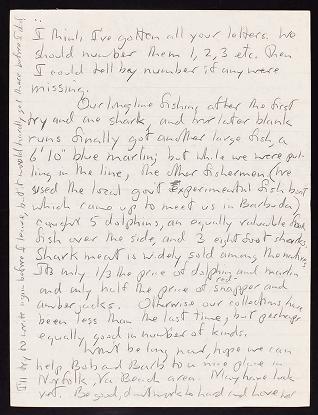 I think I've gotten all your letters. We
should number them 1, 2, 3 etc. Then
I could tell by number if any were
missing.
Our longline fishing after the first
try and one shark, and two later blank
runs finally got another large fish, a
6'10" blue marlin; but while we were pul-
ling in the line, the other fishermen (we
used the local gov't Experimental fish boat
which came up to meet us in Barbuda)
caught 5 dolphins, an equally valuable food
fish over the side, and 3 eight foot sharks.
Shark meat is widely sold among the natives
It's only 1/3 the price of dolphin and marlin
and only half the price of snapper and
amber jacks. Otherwise our collections have
been less than the last time, but perhaps
equally good in number of kinds.
Won't be long now, hope we can
help Bob and Barb to a nice place in
Norfolk, Va Beach area. May have luck
yet. Be good, don't work too hard and have
I'll try to write again before I leave, but it would hardly get there before I did